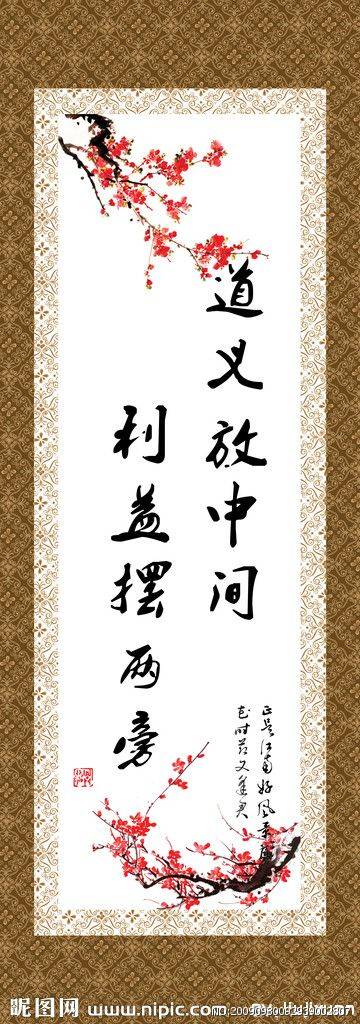 道义放中间
利益摆两旁
正是江南好风景
花时节又逢君
昵图网 www.nipic.com